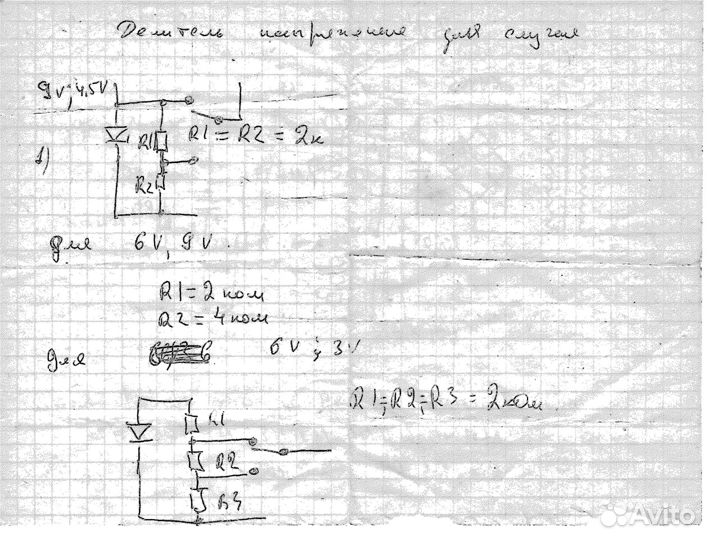 Делитель напряжение для случая
9v; 4,5V
1)
R1
R1 = R2 = 2к
R2
для 6V, 9V.
R1 = 2 ком
R2 = 4 ком
для 6V и 3V
R1 = R2 = R3 = 2ком
R1
R2
R3
Avito